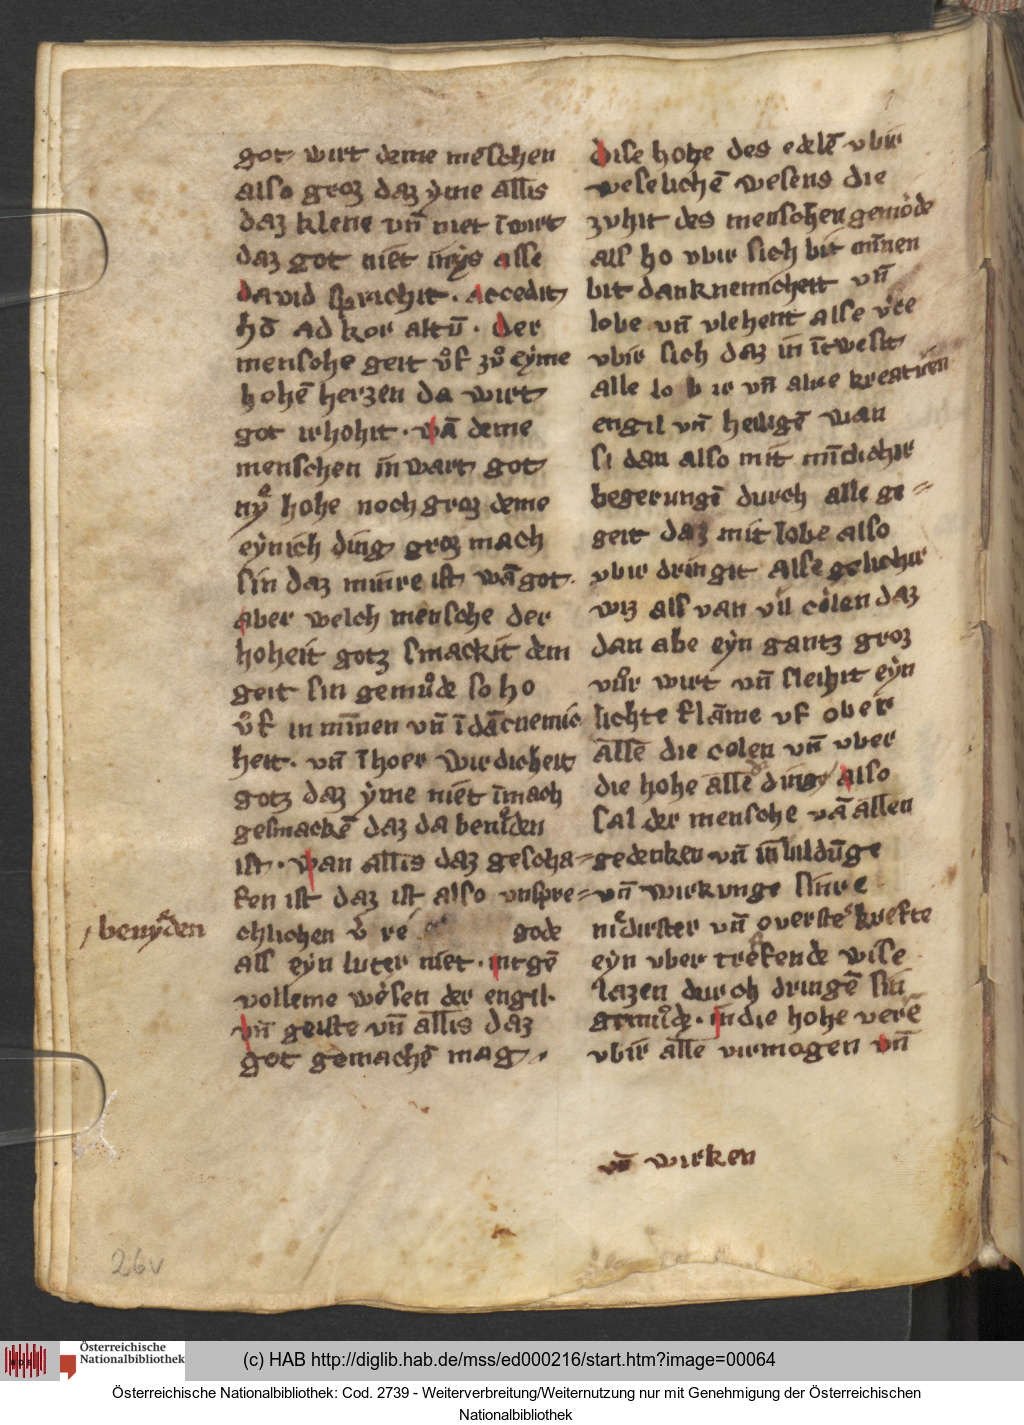 got wirt deme menschen
also groz daz yme allis
daz klene vn̄ niet īwirt
daz got niet inys alse
dauid sprichit · accedit
hō ad kor altū · der
mensche geit vͦf zvͦ eyme
hohē herzen da wirt
got irhohit · wā deme
menschen inwart got
nyͤ hohe noch groz deme
eynich ding groz mach
sin daz minre ist wā got
aber welch mensche der
hoheit gotz smackit dem
geit sin gemuͦde so ho
vͦf in mīnen vn̄ ī dācnemic
heit · vn̄ ī hoer wirdicheit
gotz daz yme niet īmach
gesmackē daz da beniͤden
ist · wan allis daz gescha=
fen ist daz ist also vnspre=
chlichen gode
als eyn luter niet · intgē
volleme wesen der engil·
vn̄ geiste vn̄ allis daz
got gemachē mag
benyͤden
dise hohe des edelē vbir
weselichē wesens die
zvhit des menschen gemode
als ho vbir sich bit mīnen
bit danknemicheit vn̄
lobe vn̄ vlehent alse
vbir sich daz in ītwesit
alle lob ir vn̄ alre kreaturen
engil vn̄ heiligē wan
si dan also mit mīclichir
begerungē durch alle ge=
geit daz mit lobe also
vbir dringit alse gelichir
wiz als van vil colen daz
dan abe eyn gantz groz
vuͦr wirt vn̄ sleihit eyn
lichte flāme vf ober
alle die colen vn̄ vber
die hohe alle ding also
sal der mensche vā allen
gedenken vn̄ inbildūge
vn̄ wirkunge sinre
niͤdirster vn̄ overste krefte
eyn vber trefende wise
lazen durch dringē sin
gemuͦde · in die hohe verē
vbir alle virmogen vn̄
vn̄ wirken
26v
Österreichische
Nationalbibliothek
(c) HAB http://diglib.hab.de/mss/ed000216/start.htm?image=00064
Österreichische Nationalbibliothek: Cod. 2739 - Weiterverbreitung/Weiternutzung nur mit Genehmigung der Österreichischen
Nationalbibliothek